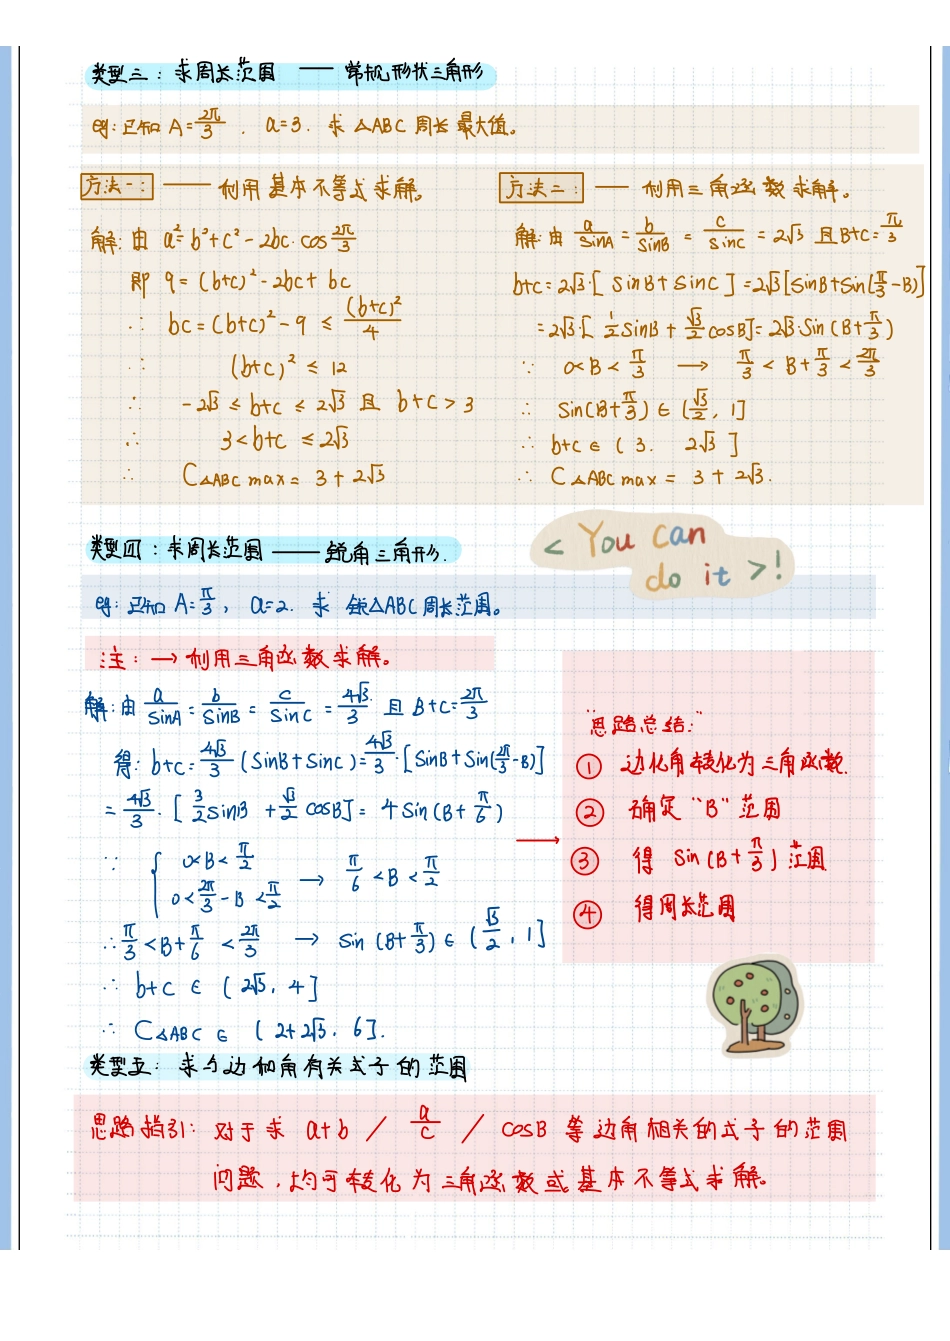 类型三：求周长范围 —— 常规形状三角形
例：已知 A=2π/3，a=3. 求△ABC 周长最大值。
方法一： —— 利用基本不等式求解。
解：由 a²=b²+c²-2bc·cos 2π/3
即 9=(b+c)²-2bc+bc
∴ bc=(b+c)²-9 ≤ (b+c)²/4
∴ (b+c)² ≤ 12
∴ -2√3 ≤ b+c ≤ 2√3 且 b+c>3
∴ 3<b+c ≤2√3
∴ C△ABC max = 3+2√3
方法二： —— 利用三角函数求解。
解：由 a/sinA = b/sinB = c/sinC = 2√3 且B+C=π/3
b+c=2√3·[sinB+sinC]=2√3[sinB+sin(π/3-B)]
=2√3·[1/2 sinB+√3/2 cosB]=2√3·sin(B+π/3)
∵ 0<B<π/3 → π/3<B+π/3<2π/3
∴ sin(B+π/3)∈(√3/2, 1]
∴ b+c∈(3. 2√3]
∴ C△ABC max = 3+2√3.
类型四：求周长范围 —— 锐角三角形.
< You can
do it >!
例：已知 A=π/3，a=2. 求 锐△ABC周长范围。
注：→利用三角函数求解。
解：由 a/sinA = b/sinB = c/sinC = 4√3/3 且 B+C=2π/3
得：b+c=4√3/3 (sinB+sinC)=4√3/3·[sinB+sin(2π/3-B)]
=4√3/3·[3/2 sinB+√3/2 cosB]=4sin(B+π/6)
∵ { 0<B<π/2
0<2π/3-B<π/2 → π/6<B<π/2
∴ π/3<B+π/6<2π/3 → sin(B+π/3)∈(√3/2, 1]
∴ b+c∈(2√3, 4]
∴ C△ABC∈(2+2√3, 6].
→
"思路总结："
① 边化角转化为三角函数.
② 确定"B"范围
③ 得 sin(B+π/3)范围
④ 得周长范围
类型五：求与边和角有关式子的范围
思路指引：对于求 a+b / a/c / cosB 等边角相关的式子的范围
问题，均可转化为三角函数或基本不等式求解。